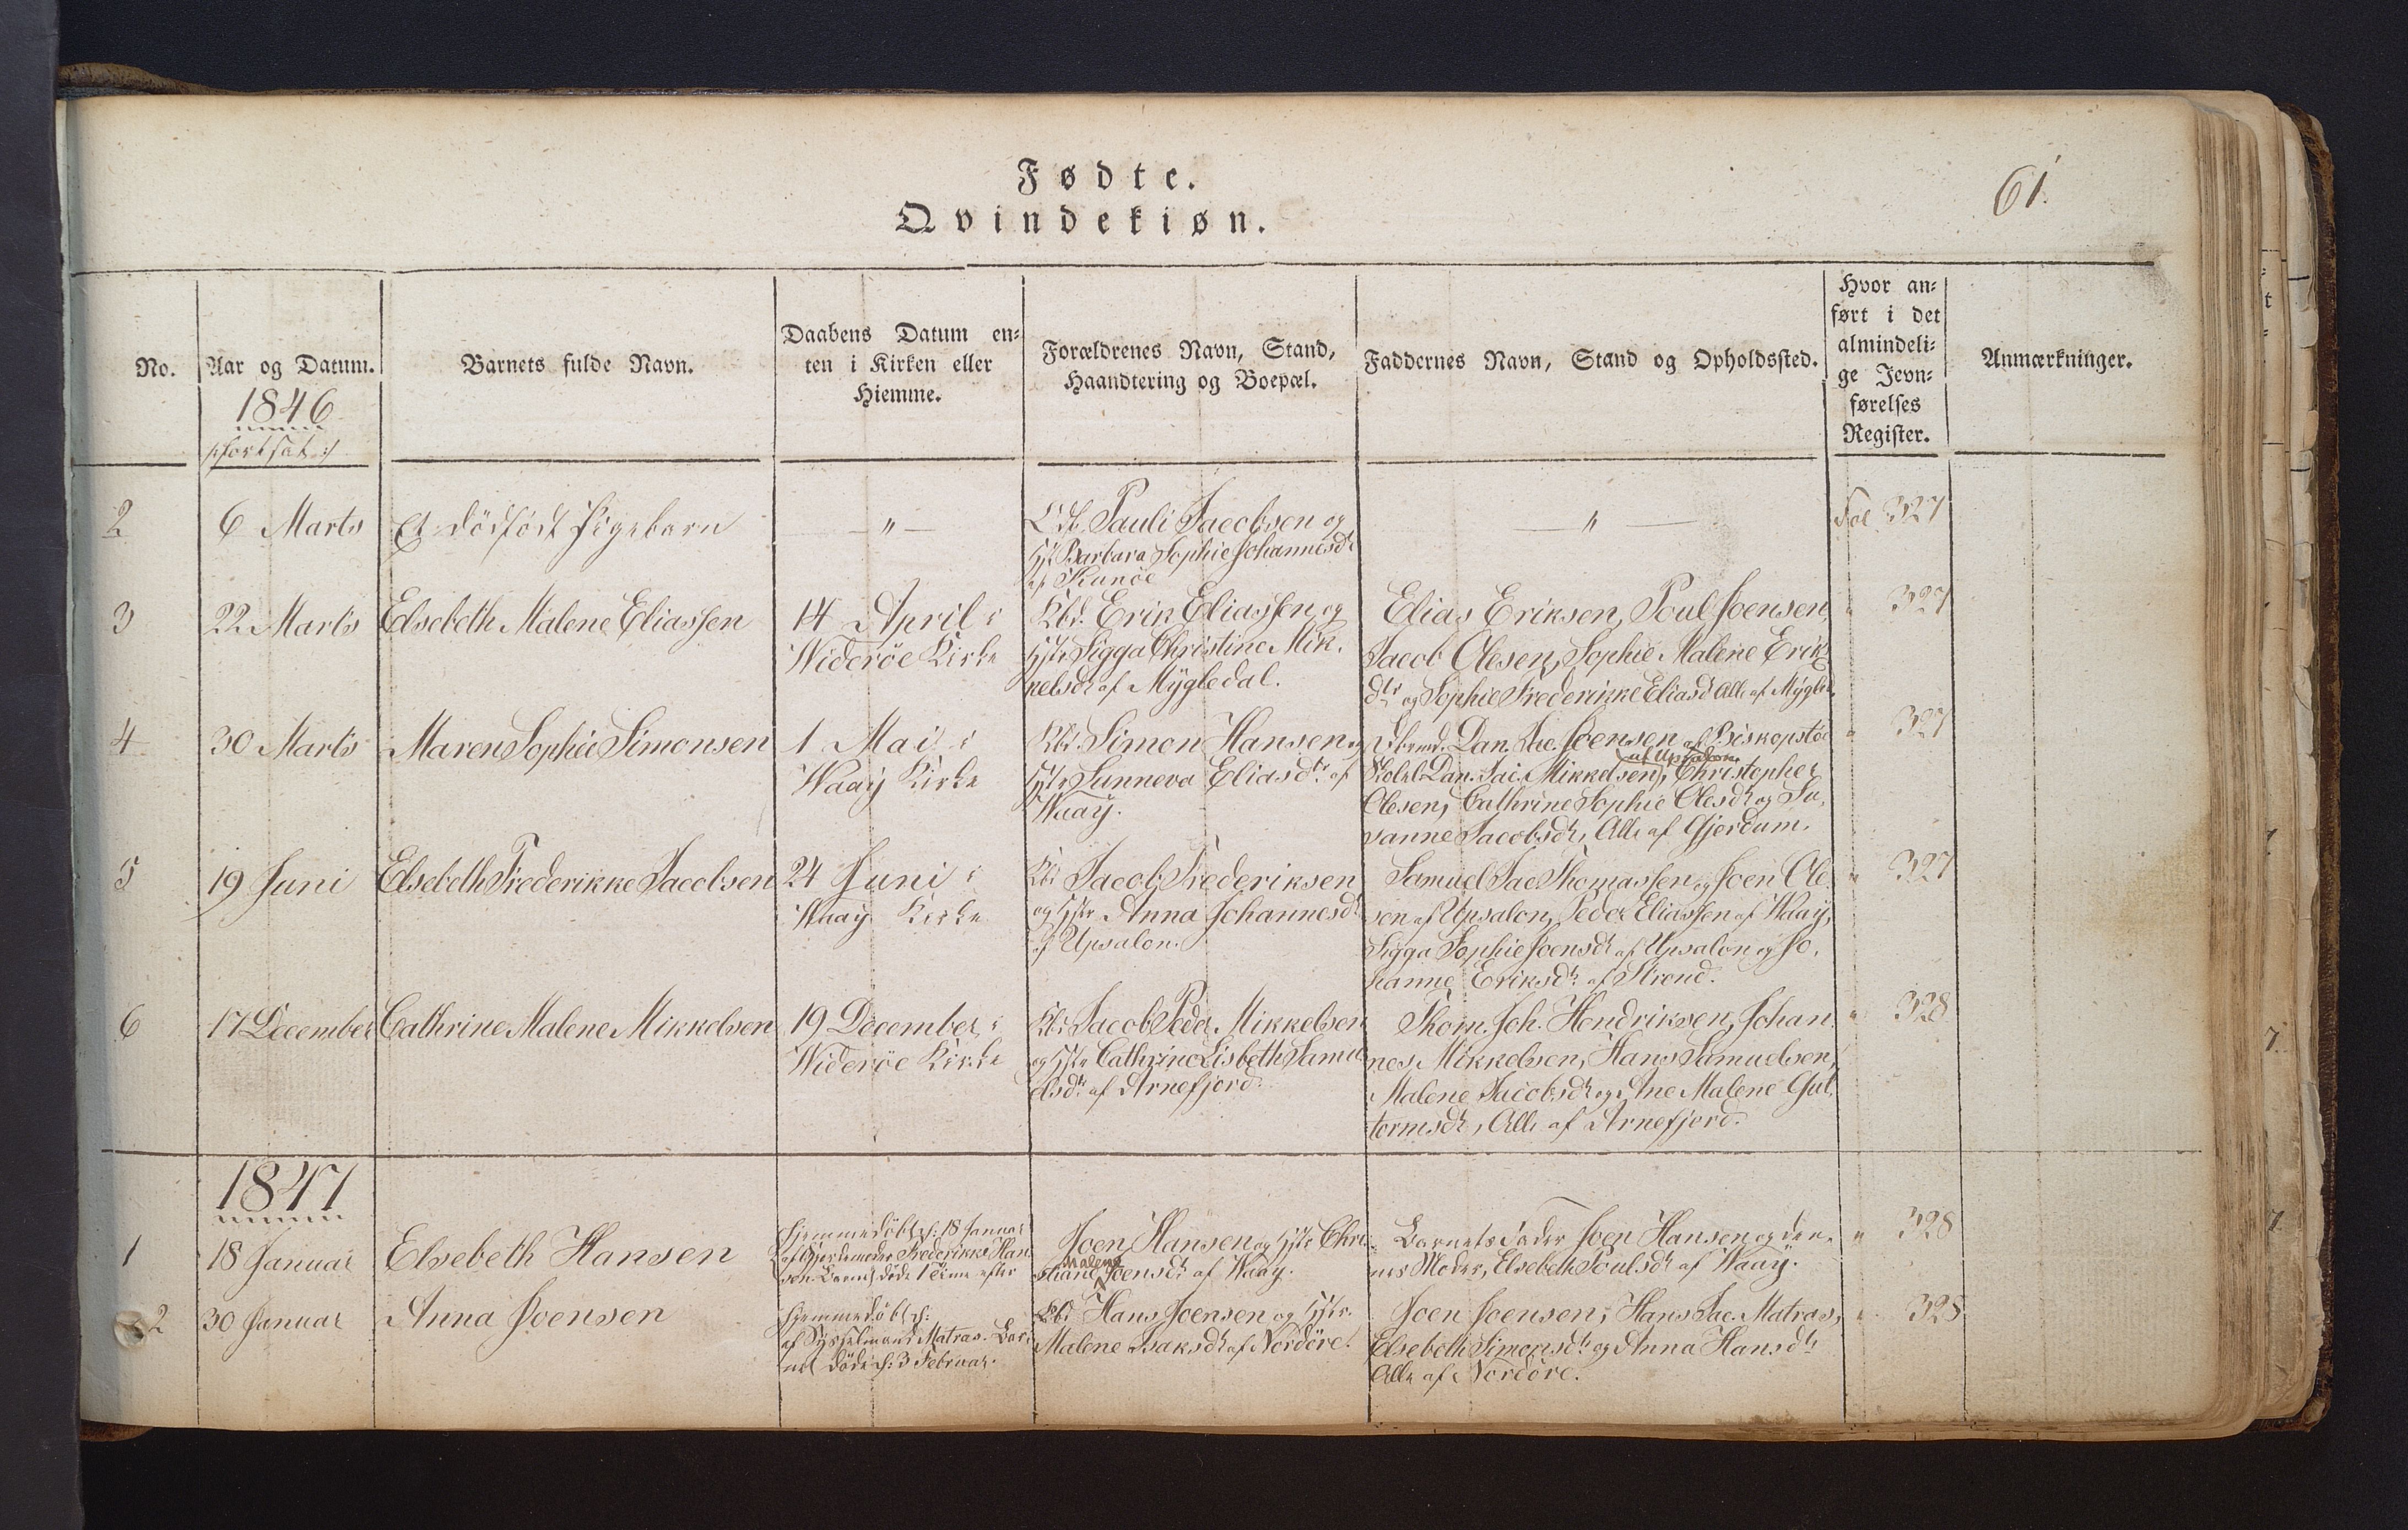 Fødte.
61.
Qvindekiøn.
No.
Aar og Datum.
Barnets fulde Navn.
Daabens Datum en-
ten i Kirken eller
Hiemme.
Forældrenes Navn, Stand,
Haandtering og Boepæl.
Faddernes Navn, Stand og Opholdssted.
Hvor an-
ført i det
almindeli-
ge Jevn-
førelses
Register.
Anmærkninger.
1846
/:fortsat:/
2
6 Marts
Et dödfödt Pigebarn
— " —
Pauli Jacobsen og
Hst. Barbara Sophie Johannesdr
af Kunöe
— " —
Fol 327
3
22 Marts
Elsebeth Malene Eliassen
14 April i
Widerøe Kirke
Kbd. Erik Eliassen og
Hstr Sigga Christine Mik-
kelsdr af Mÿgledal.
Elias Eriksen, Poul Joensen,
Jacob Olesen, Sophie Malene Eriks
dtr og Sophie Frederikke Eliasd Alle af Mÿgled.
" 327
4
30 Marts
Maren Sophie Simonsen
1 Mai i
Waaÿ Kirke
Kbd. Simon Hansen og
Hstr Sunneva Eliasdtr af
Waaÿ.
Dan. Jac. Joensen af Biskopstöe
af Upsalon
Dan. Jac. Mikkelsen, Christopher
Olesen, Cathrine Sophie Olesdr og Su-
sanne Jacobsdr, Alle af Gjerdum.
" 327
5
19 Juni
Elsebeth Frederikke Jacobsen
24 Juni i
Waaÿ Kirke
Kbd Jacob Frederiksen
og Hstr Anna Johannesdr
af Upsalon.
Samuel Jac Thomassen og Joen Ole-
sen af Upsalon, Peder Eliassen af Waaÿ,
Sigga Sophie Joensdr af Upsalon og Jo-
hanne Eriksdr af Strond.
" 327
6
17 December
Cathrine Malene Mikkelsen
19 December i
Widerøe Kirke
Kbd Jacob Peder Mikkelsen
og Hstr Cathrine Lisbeth Samu-
elsdr af Arnefjord.
Thom. Joh. Hendriksen, Johan-
nes Mikkelsen, Hans Samuelsen,
Malene Jacobsdr og Ane Malene Gut-
tormsdr, Alle af Arnefjord.
" 328
1847
1
18 Januar
Elsebeth Hansen
Hjemmedöbt d: 18 Januar
af Gjordemoder Frederikke Han-
sen. Barnet döde 1 Time efter
Joen Hansen og Hstr Chri-
Malene
stiane Joensdr af Waaÿ.
Barnets Fader Joen Hansen og den-
nes Moder, Elsebeth Poulsdr af Waaÿ.
" 328
2
30 Januar
Anna Joensen
Hjemmedöbt d:
af Sysselmand Matras. Bar-
net döde d: 3 Februar.
Kbd Hans Joensen og Hstr.
Malene Isaksdr af Nordöre.
Joen Joensen, Hans Jac. Matras,
Elsebeth Simonsdtr og Anna Hansdtr
Alle af Nordöre.
" 328